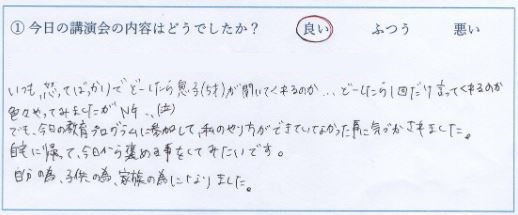 ① 今日の講演会の内容はどうでしたか？ 良い ふつう 悪い
いつも、怒ってばっかりで どーしたら息子(5才)が聞いてくれるのか… どーしたら1回だけ言ってくれるのか
色々やってみましたが NG ‥(泣)
でも、今日の教育プログラムに参加して、私のやり方ができていなかった事に気づかされました。
自宅に帰って、今日から褒める事をしてみたいです。
自分の為、子供の為、家族の為になりました。